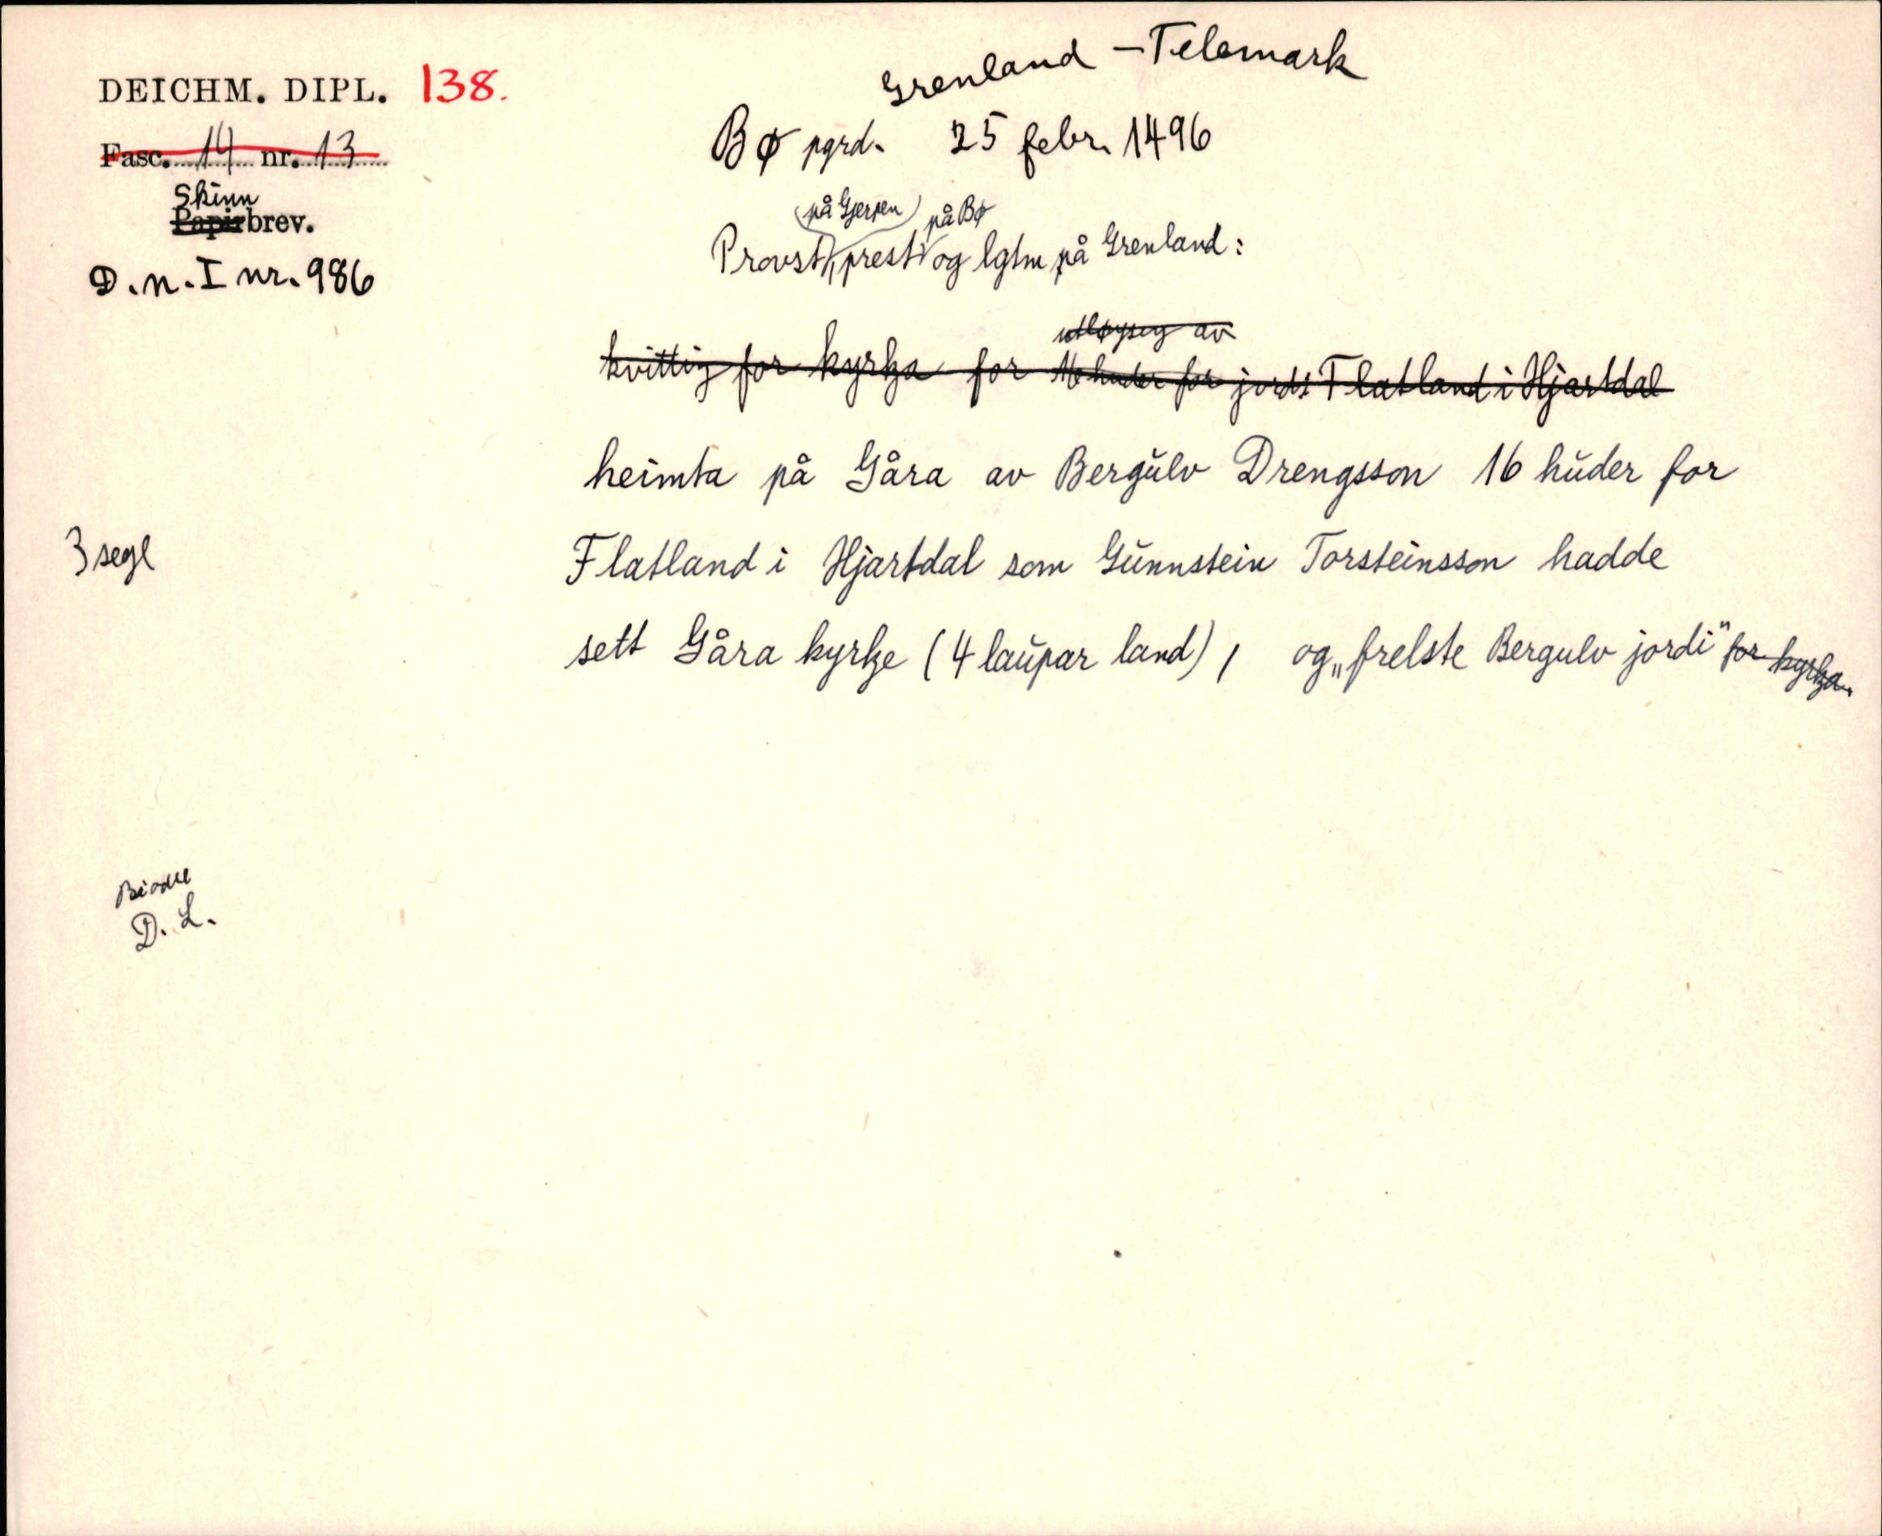 Grenland – Telemark
DEICHM. DIPL. 138.
Bø pgrd. 25 febr. 1496
Fasc. 14 nr. 13
Skinn
Papirbrev.
(på Gjerpen) på Bø
Provst, prest og lgtm på Grenland:
D. n. I nr. 986
utløysng av
kvittig for kyrkja for 16 huder for jordi Flatland i Hjartdal
heimta på Gåra av Bergulv Drengsson 16 huder for
3 segl
Flatland i Hjartdal som Gunnstein Torsteinsson hadde
sett Gåra kyrkje (4 laupar land), og „frelste Bergulv jordi" for kyrkja.
D. L.